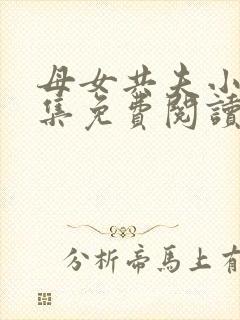 母女共夫小
集免費閱讀
分析帝馬上有